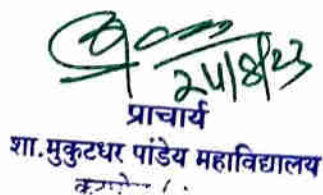 24/8/23
प्राचार्य
शा.मुकुटधर पांडेय महाविद्यालय